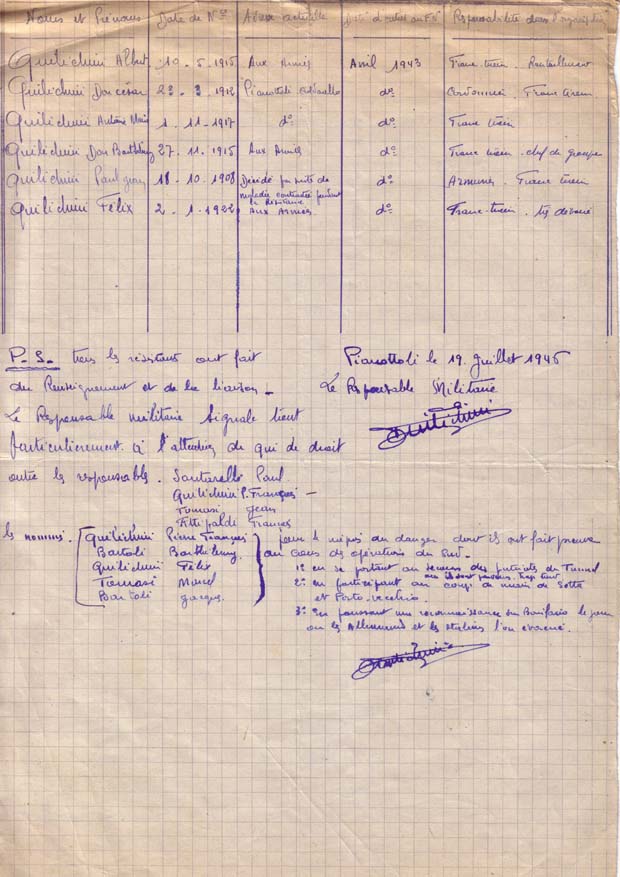 Noms et Prénoms Date de Nce Adresse actuelle Date d'entrée au F.N Responsabilité dans l'organisation
Quilichini Albert 10 . 5 . 1915 Aux Armées Avril 1943 Franc-tireur . Ravitaillement
Quilichini Don césar 23 . 3 . 1912 Pianottoli do Franc tireur
Quilichini Antoine Marie 1 . 11 . 1917 do do Franc tireur
Quilichini Don Barthélemy 27 . 11 . 1915 Aux Armées do Franc tireur . chef de groupe
Quilichini Paul Jean 18 . 10 . 1908 Décédé par suite de maladie contractée pendant la résistance do Armurier . Franc tireur
Quilichini Félix 2 . 1 . 1922 Aux Armées do Franc-tireur . très dévoué
P. S. tous les résistants ont fait
du Renseignement et de la liaison _
Pianottoli le 19 Juillet 1945
Le Responsable Militaire
Quilichini
Le Responsable militaire Signale tient
particulièrement à l'attention de qui de droit
outre les responsables . Santarelli Paul .
Quilichini P. François _
Tomasi Jean
François
les nommés .
Quilichini Pierre François
Bartoli Barthélemy
Quilichini Félix
Tomasi Marcel
Bartoli Jacques .
pour le mépris du danger dont ils ont fait preuve
au cours des opérations du Sud _
1o en se portant au secours des patriotes du Tunnel
ou ils sont parvenus trop tard
2o en participant au coup de main de Sotta
et Porto-vecchio .
3o En poussant une reconnaissance sur Bonifacio le jour
ou les Allemands et les Italiens l'on évacué .